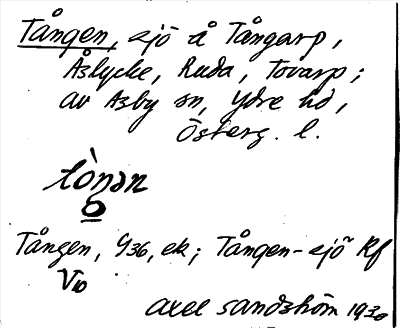 Tången, sjö å Tångarp,
Åslycke, Ruda, Tovarp;
av Asby sn, Ydre hd,
Österg. l.
Tången, G36, ek; Tången-sjö Rf
V10
Axel Sandström 1930